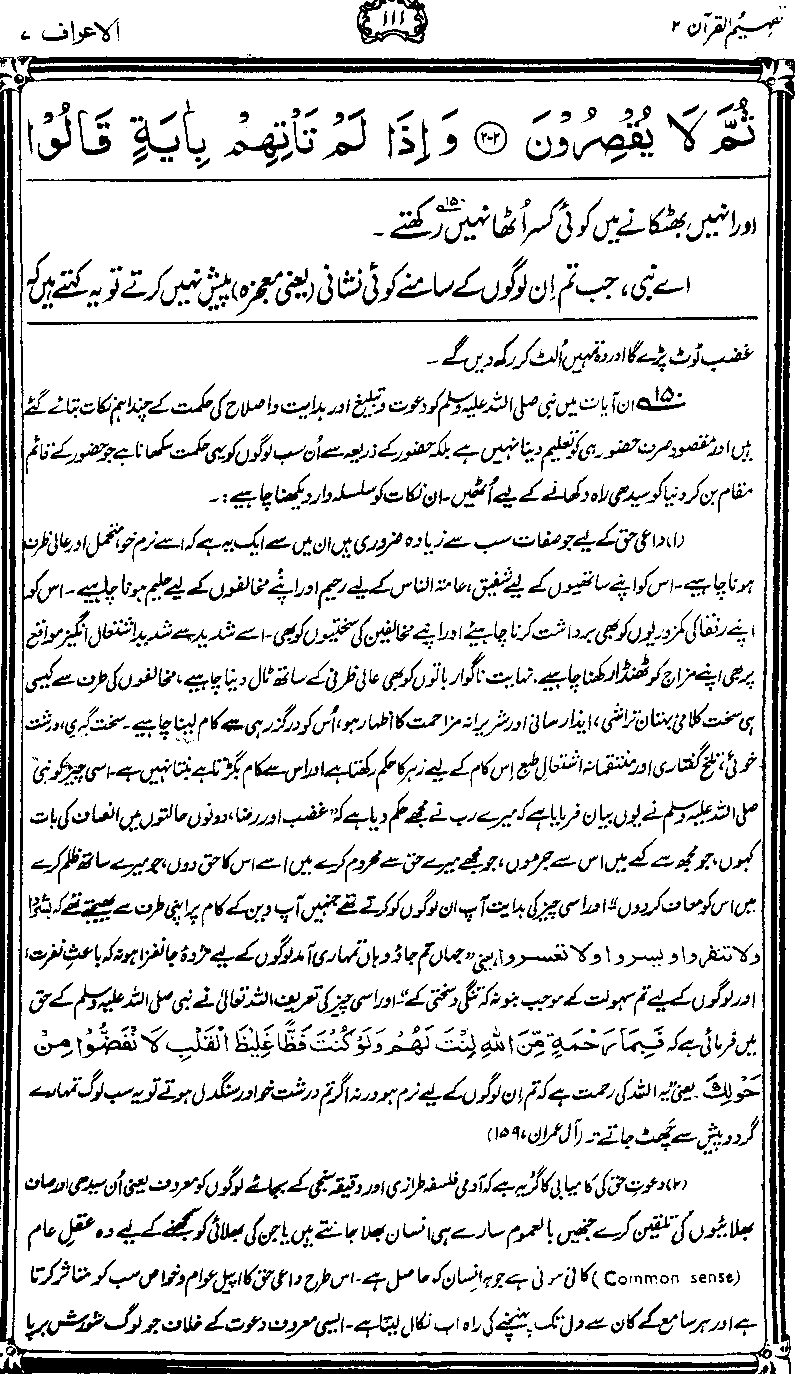 تفہیم القرآن ۲
۱۱۱
الاعراف ۷
ثُمَّ لَا يُقْصِرُوْنَ ﴿۲۰۲﴾ وَاِذَا لَمْ تَاْتِهِمْ بِاٰيَةٍ قَالُوْا
اور انہیں بھٹکانے میں کوئی کسر اُٹھا نہیں رکھتے۱۵۰۔
اے نبی، جب تم اِن لوگوں کے سامنے کوئی نشانی (یعنی معجزہ) پیش نہیں کرتے تو یہ کہتے ہیں کہ
غضب ٹوٹ پڑے گا اور وہ تمہیں اُلٹ کر رکھ دیں گے۔
۱۵۰ ان آیات میں نبی صلی اللہ علیہ وسلم کو دعوت و تبلیغ اور ہدایت و اصلاح کی حکمت کے چند اہم نکات بتائے گئے
ہیں اور مقصود صرف حضور ہی کو تعلیم دینا نہیں ہے بلکہ حضور کے ذریعہ سے اُن سب لوگوں کو یہی حکمت سکھانا ہے جو حضور کے قائم
مقام بن کر دنیا کو سیدھی راہ دکھانے کے لیے اُٹھیں۔ ان نکات کو سلسلہ وار دیکھنا چاہیے:۔
(۱) داعی حق کے لیے جو صفات سب سے زیادہ ضروری ہیں ان میں سے ایک یہ ہے کہ اسے نرم خو، متحمل اور عالی ظرف
ہونا چاہیے۔ اس کو اپنے ساتھیوں کے لیے شفیق، عامۃ الناس کے لیے رحیم اور اپنے مخالفوں کے لیے حلیم ہونا چاہیے۔ اس کو
اپنے رفقا کی کمزوریوں کو بھی برداشت کرنا چاہیے اور اپنے مخالفین کی سختیوں کو بھی۔ اسے شدید سے شدید اشتعال انگیز مواقع
پر بھی اپنے مزاج کو ٹھنڈا رکھنا چاہیے، نہایت ناگوار باتوں کو بھی عالی ظرفی کے ساتھ ٹال دینا چاہیے، مخالفوں کی طرف سے کیسی
ہی سخت کلامی، بہتان تراشی، ایذا رسانی اور شریرانہ مزاحمت کا اظہار ہو، اُس کو درگزر ہی سے کام لینا چاہیے۔ سخت گیری، درشت
خوئی، تلخ گفتاری اور منتقمانہ اشتعالِ طبع اِس کام کے لیے زہر کا حکم رکھتا ہے اور اس سے کام بگڑتا ہے بنتا نہیں ہے۔ اسی چیز کو نبی
صلی اللہ علیہ وسلم نے یوں بیان فرمایا ہے کہ میرے رب نے مجھے حکم دیا ہے کہ ”غضب اور رضا، دونوں حالتوں میں انصاف کی بات
کہوں، جو مجھ سے کٹے میں اس سے جڑوں، جو مجھے میرے حق سے محروم کرے میں اسے اس کا حق دوں، جو میرے ساتھ ظلم کرے
میں اس کو معاف کر دوں“ اور اسی چیز کی ہدایت آپ ان لوگوں کو کرتے تھے جنہیں آپ دین کے کام پر اپنی طرف سے بھیجتے تھے کہ بشروا
ولا تنفروا و یسروا ولا تعسروا، یعنی ”جہاں تم جاؤ وہاں تمہاری آمد لوگوں کے لیے مژدۂ جانفزا ہو نہ کہ باعثِ نفرت،
اور لوگوں کے لیے تم سہولت کے موجب بنو نہ کہ تنگی و سختی کے“ اور اسی چیز کی تعریف اللہ تعالیٰ نے نبی صلی اللہ علیہ وسلم کے حق
میں فرمائی ہے کہ فَبِمَا رَحْمَةٍ مِّنَ اللهِ لِنْتَ لَهُمْ وَلَوْ كُنْتَ فَظًّا غَلِيْظَ الْقَلْبِ لَا نْفَضُّوْا مِنْ
حَوْلِكَ۔ یعنی ”یہ اللہ کی رحمت ہے کہ تم اِن لوگوں کے لیے نرم ہو ورنہ اگر تم درشت خو اور سنگدل ہوتے تو یہ سب لوگ تمہارے
گرد و پیش سے چھٹ جاتے“۔ (آل عمران، ۱۵۹)
(۲) دعوتِ حق کی کامیابی کا گُر یہ ہے کہ آدمی فلسفہ طرازی اور دقیقہ سنجی کے بجائے لوگوں کو معروف یعنی اُن سیدھی اور صاف
بھلائیوں کی تلقین کرے جنھیں بالعموم سارے ہی انسان بھلا جانتے ہیں یا جن کی بھلائی کو سمجھنے کے لیے وہ عقلِ عام
(Common sense) کافی ہوتی ہے جو ہر انسان کو حاصل ہے۔ اس طرح داعی حق کا اپیل عوام و خواص سب کو متاثر کرتا
ہے اور ہر سامع کے کان سے دل تک پہنچنے کی راہ آپ نکال لیتا ہے۔ ایسی معروف دعوت کے خلاف جو لوگ شورش برپا